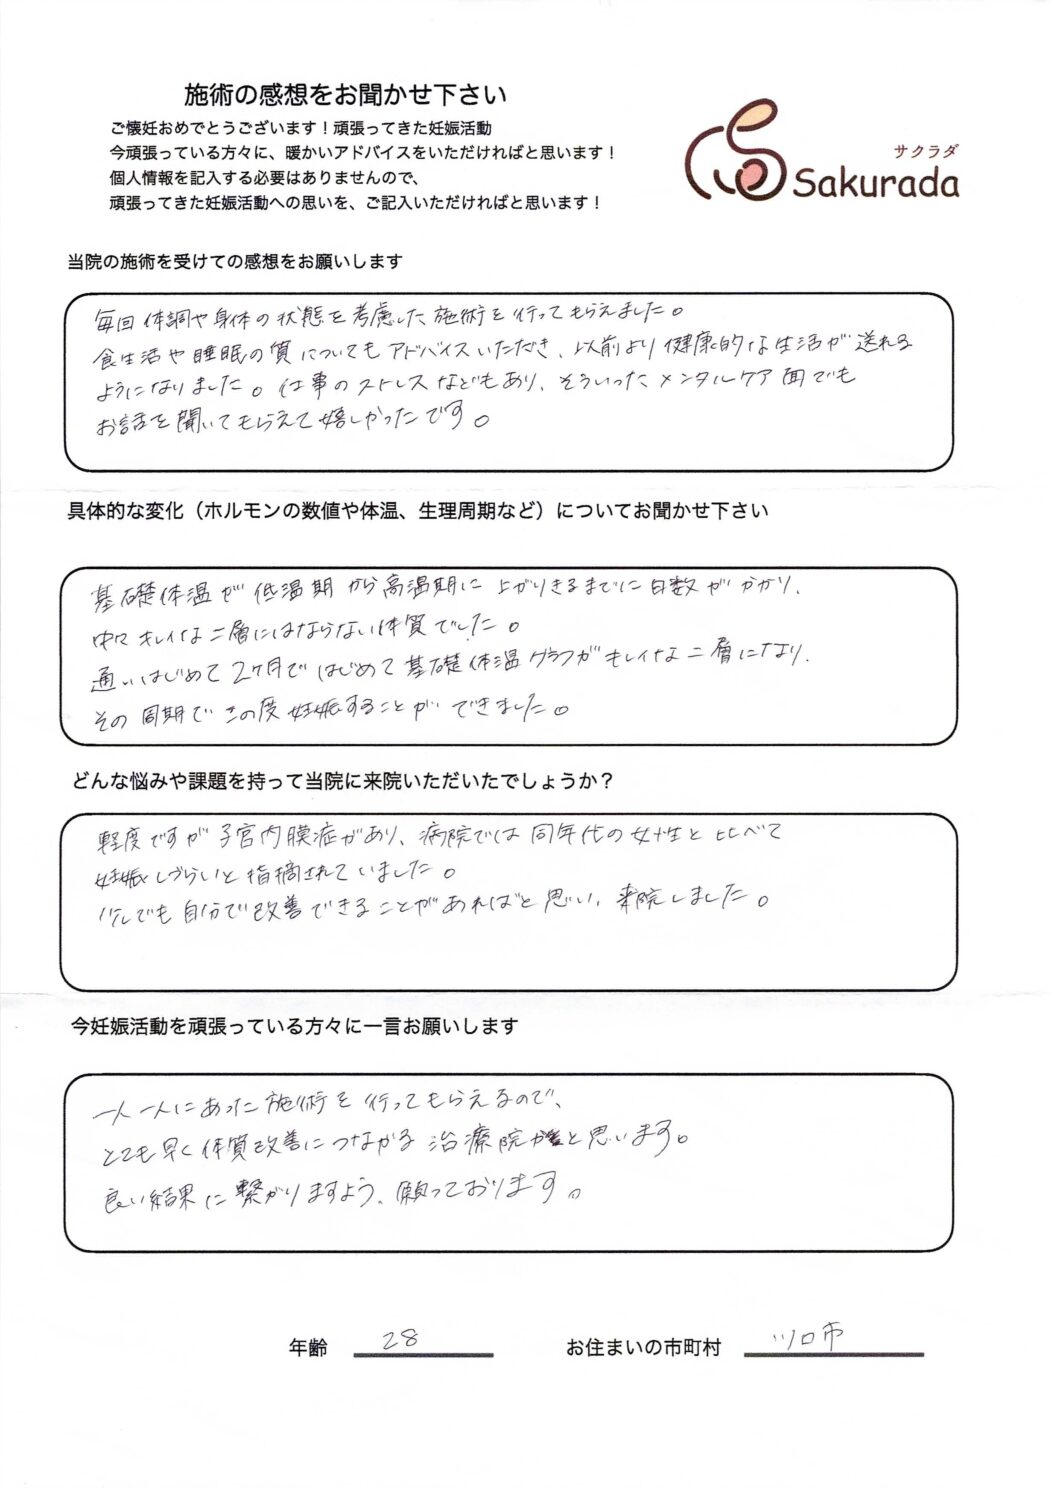 施術の感想をお聞かせ下さい
ご懐妊おめでとうございます！頑張ってきた妊娠活動
今頑張っている方々に、暖かいアドバイスをいただければと思います！
個人情報を記入する必要はありませんので、
頑張ってきた妊娠活動への思いを、ご記入いただければと思います！
サクラダ
Sakurada
当院の施術を受けての感想をお願いします
毎回体調や身体の状態を考慮した施術を行ってもらえました。
食生活や睡眠の質についてもアドバイスいただき、以前より健康的な生活が送れる
ようになりました。仕事のストレスなどもあり、そういったメンタルケア面でも
お話を聞いてもらえて嬉しかったです。
具体的な変化（ホルモンの数値や体温、生理周期など）についてお聞かせ下さい
基礎体温が低温期から高温期に上がりきるまでに日数がかかり、
中々キレイな二層にはならない体質でした。
通いはじめて2ヶ月ではじめて基礎体温グラフがキレイな二層になり、
その周期でこの度妊娠することができました。
どんな悩みや課題を持って当院に来院いただいたでしょうか？
軽度ですが子宮内膜症があり、病院では同年代の女性と比べて
妊娠しづらいと指摘されていました。
少しでも自分で改善できることがあればと思い、来院しました。
今妊娠活動を頑張っている方々に一言お願いします
一人一人にあった施術を行ってもらえるので、
とても早く体質改善につながる治療院かと思います。
良い結果に繋がりますよう、願っております。
年齢 28
お住まいの市町村 市